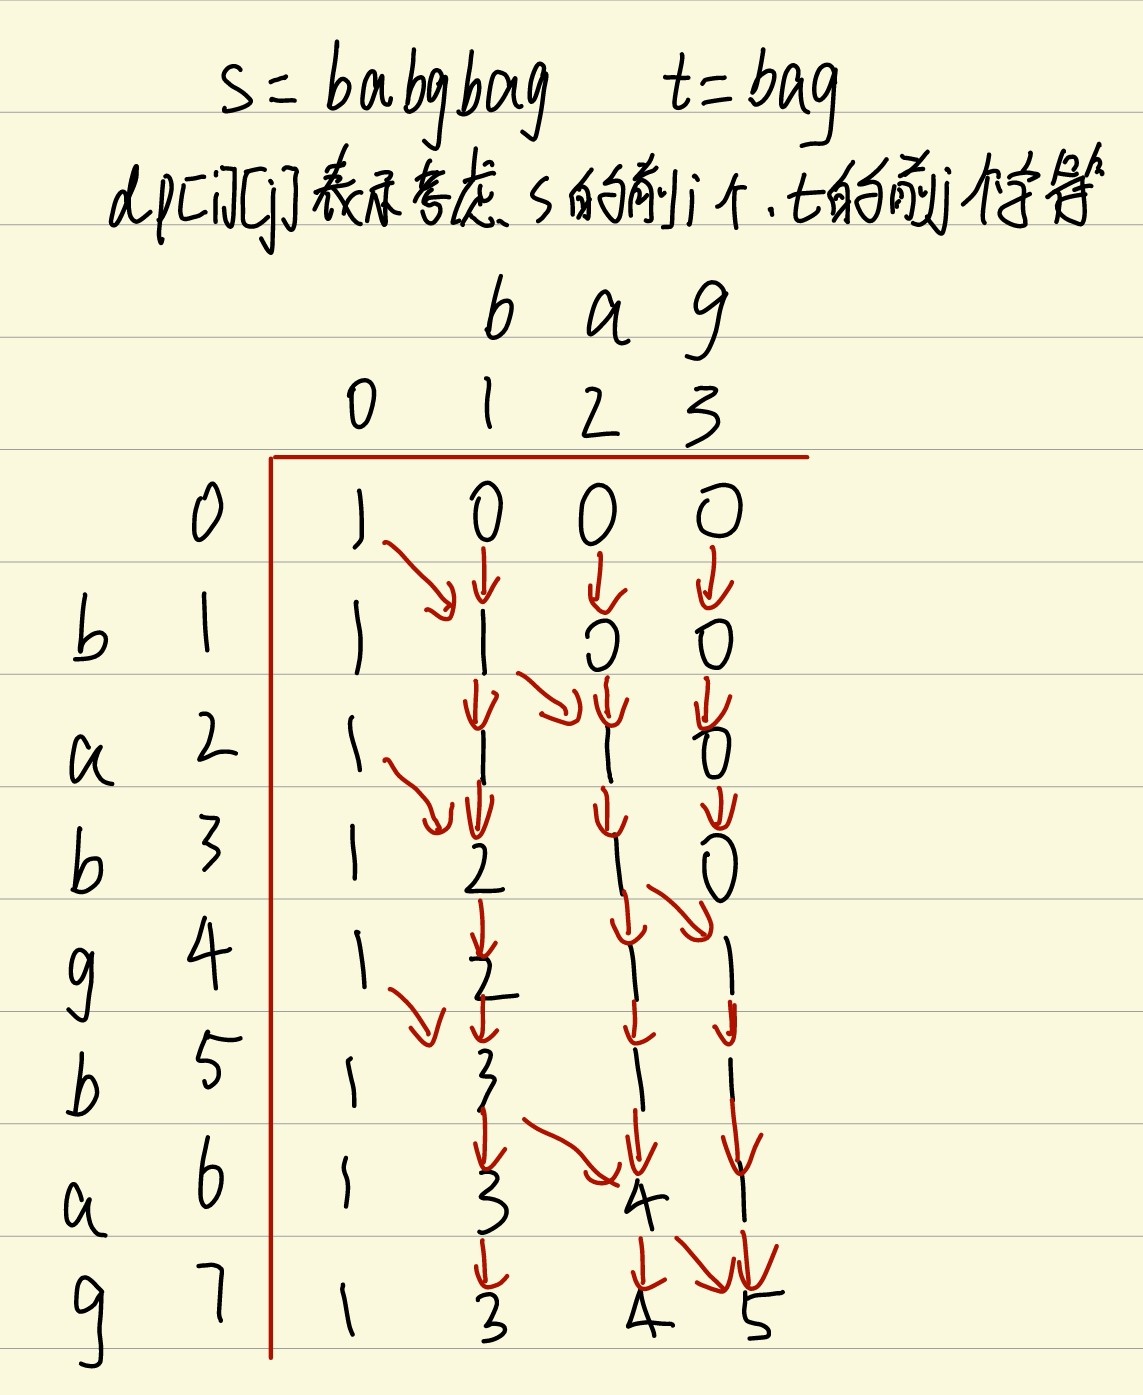 s = babgbag t = bag
dp[i][j]表示考虑s的前i个.t的前j个字符
b a g
0 1 2 3
0 1 0 0 0
b 1 1 1 0 0
a 2 1 1 1 0
b 3 1 2 1 0
g 4 1 2 1 1
b 5 1 3 1 1
a 6 1 3 4 1
g 7 1 3 4 5